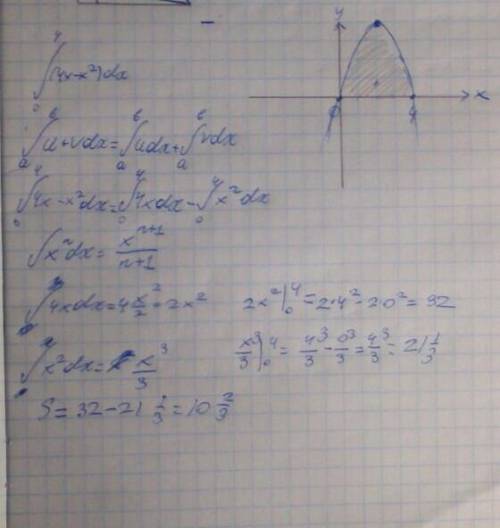 y
x
0 4
∫₀⁴ (4x-x²)dx
∫ₐᵇ u+vdx = ∫ₐᵇ udx + ∫ₐᵇ vdx
∫₀⁴ 4x-x²dx = ∫₀⁴ 4xdx - ∫₀⁴ x²dx
∫xⁿdx = xⁿ⁺¹/n+1
∫4xdx = 4x²/2 = 2x² 2x²|₀⁴ = 2·4² - 2·0² = 32
∫x²dx = x³/3 x³/3|₀⁴ = 4³/3 - 0³/3 = 4³/3 = 21 1/3
S = 32 - 21 1/3 = 10 2/3